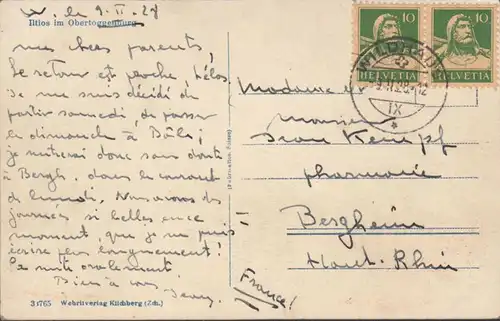 W. le 9. II. 28
Iltios im Obertoggenburg
mes chers parents,
Le retour est proche, hélas.
Je me suis décidé de
partir samedi, de passer
le dimanche à Bâle;
je rentrerai donc sans doute
à Bergh. dans le courant
de lundi. Nous avons des
journées si belles en ce
moment, que je ne puis
écrire plus longuement!
Je suis
Bien à vous
Jean
31765 Wehrliverlag Kilchberg (Zch.)
10 10
HELVETIA HELVETIA
WILDHAUS
IX
Madame et
Monsieur
Jean Kempf
pharmacie
Bergheim
Haut-Rhin
(France!)